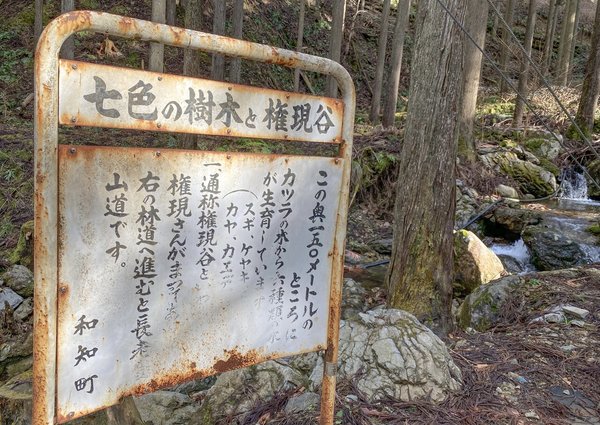 七色の樹木と権現谷
この奥一五〇メートルのところに
カツラの木から六種類の木
が生育しています
（スギ ケヤキ
カヤ カエデ
一通称権現谷と
権現さんがまつ
右の林道へ進むと長老
山道です。
和知町